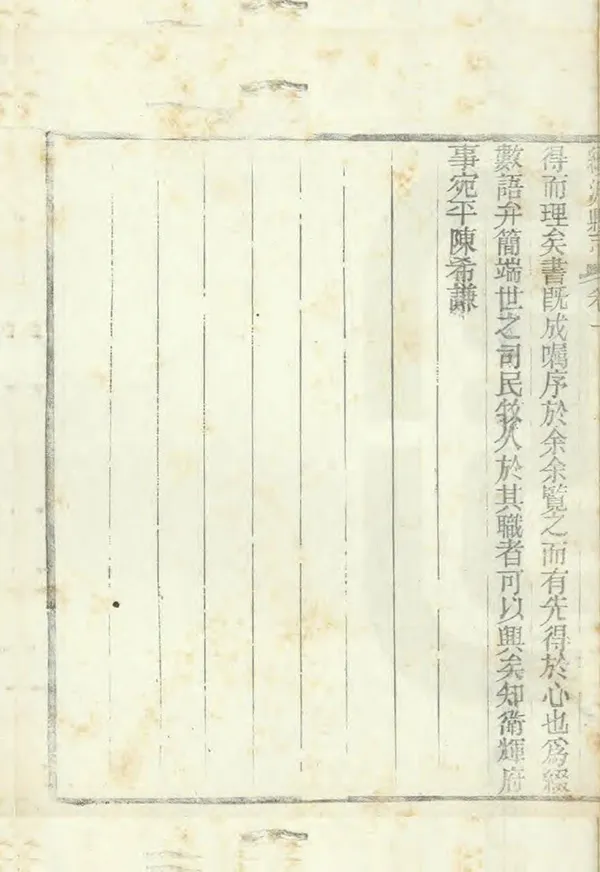 縣志 卷一
得而理矣書既成囑序於余余覽之而有先得於心也爲綴
數語弁簡端世之司民牧人於其職者可以興矣知衛輝府
事宛平陳希謙